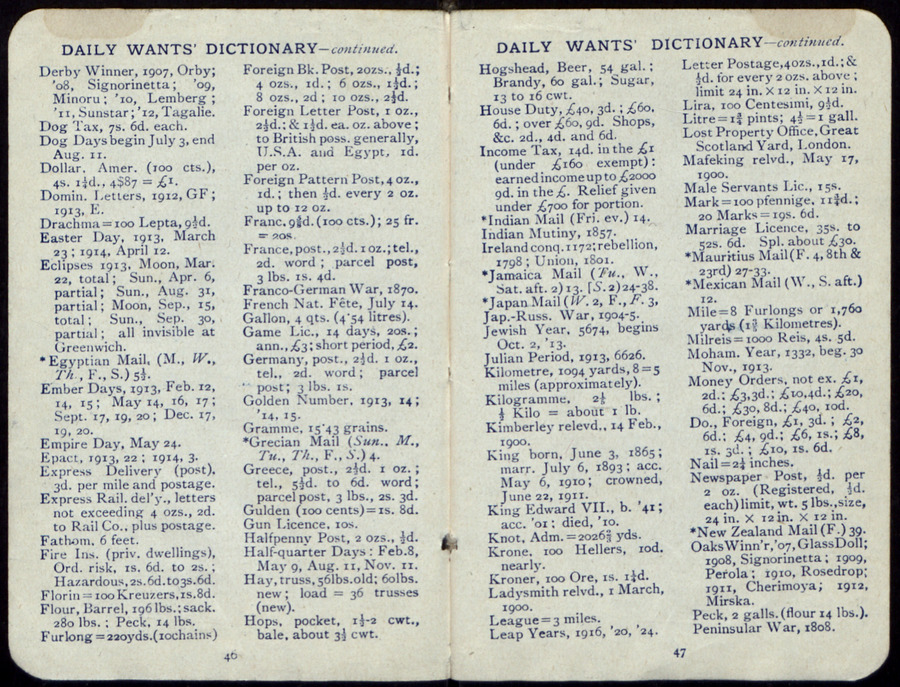 DAILY WANTS' DICTIONARY—continued.
Derby Winner, 1907, Orby;
'08, Signorinetta; '09,
Minoru; '10, Lemberg;
'11, Sunstar; '12, Tagalie.
Dog Tax, 7s. 6d. each.
Dog Days begin July 3, end
Aug. 11.
Dollar, Amer. (100 cts.),
4s. 1½d., 4$87 = £1.
Domin. Letters, 1912, GF;
1913, E.
Drachma=100 Lepta, 9½d.
Easter Day, 1913, March
23; 1914, April 12.
Eclipses 1913. Moon, Mar.
22, total; Sun., Apr. 6,
partial; Sun., Aug. 31,
partial; Moon, Sep., 15,
total; Sun., Sep. 30,
partial; all invisible at
Greenwich.
*Egyptian Mail, (M., W.,
Th., F., S.) 5½.
Ember Days, 1913, Feb. 12,
14, 15; May 14, 16, 17;
Sept. 17, 19, 20; Dec. 17,
19, 20.
Empire Day, May 24.
Epact, 1913, 22; 1914, 3.
Express Delivery (post),
3d. per mile and postage.
Express Rail. del'y., letters
not exceeding 4 ozs., 2d.
to Rail Co., plus postage.
Fathom, 6 feet.
Fire Ins. (priv. dwellings),
Ord. risk, 1s. 6d. to 2s.;
Hazardous, 2s.6d.to3s.6d.
Florin=100 Kreuzers, 1s.8d.
Flour, Barrel, 196 lbs.; sack.
280 lbs.; Peck, 14 lbs.
Furlong=220yds.(10chains)
Foreign Bk. Post, 2ozs., ½d.;
4 ozs., 1d.; 6 ozs., 1½d.;
8 ozs., 2d; 10 ozs., 2½d.
Foreign Letter Post, 1 oz.,
2½d.; & 1½d. ea. oz. above;
to British poss. generally,
U.S.A. and Egypt, 1d.
per oz.
Foreign Pattern Post, 4 oz.,
1d.; then ½d. every 2 oz.
up to 12 oz.
Franc, 9⅝d. (100 cts.); 25 fr.
= 20s.
France, post., 2½d. 1 oz.; tel.,
2d. word; parcel post,
3 lbs. 1s. 4d.
Franco-German War, 1870.
French Nat. Fête, July 14.
Gallon, 4 qts. (4'54 litres).
Game Lic., 14 days, 20s.;
ann., £3; short period, £2.
Germany, post., 2½d. 1 oz.,
tel., 2d. word; parcel
post; 3 lbs. 1s.
Golden Number, 1913, 14;
'14, 15.
Gramme, 15'43 grains.
*Grecian Mail (Sun., M.,
Tu., Th., F., S.) 4.
Greece, post., 2½d. 1 oz.;
tel., 5½d. to 6d. word;
parcel post, 3 lbs., 2s. 3d.
Gulden (100 cents)=1s. 8d.
Gun Licence, 10s.
Halfpenny Post, 2 ozs., ½d.
Half-quarter Days: Feb.8,
May 9, Aug. 11, Nov. 11.
Hay, truss, 56lbs.old; 60lbs.
new; load = 36 trusses
(new).
Hops, pocket, 1½-2 cwt.,
bale, about 3½ cwt.
46
DAILY WANTS' DICTIONARY—continued.
Hogshead, Beer, 54 gal.;
Brandy, 60 gal.; Sugar,
13 to 16 cwt.
House Duty, £40, 3d.; £60,
6d.; over £60, 9d. Shops,
&c. 2d., 4d. and 6d.
Income Tax, 14d. in the £1
(under £160 exempt):
earned income up to £2000
9d. in the £. Relief given
under £700 for portion.
*Indian Mail (Fri. ev.) 14.
Indian Mutiny, 1857.
Ireland conq. 1172; rebellion,
1798; Union, 1801.
*Jamaica Mail (Tu., W.,
Sat. aft. 2) 13. [S. 2) 24-38.
*Japan Mail (W. 2, F., F. 3,
Jap.-Russ. War, 1904-5.
Jewish Year, 5674, begins
Oct. 2, '13.
Julian Period, 1913, 6626.
Kilometre, 1094 yards, 8=5
miles (approximately).
Kilogramme, 2⅕ lbs.;
½ Kilo = about 1 lb.
Kimberley relevd., 14 Feb.,
1900.
King born, June 3, 1865;
marr. July 6, 1893; acc.
May 6, 1910; crowned,
June 22, 1911.
King Edward VII., b. '41;
acc. '01; died, '10.
Knot, Adm.=2026⅔ yds.
Krone, 100 Hellers, 10d.
nearly.
Kroner, 100 Ore, 1s. 1¼d.
Ladysmith relvd., 1 March,
1900.
League=3 miles.
Leap Years, 1916, '20, '24.
Letter Postage, 4ozs., 1d.; &
½d. for every 2 ozs. above;
limit 24 in. X 12 in. X 12 in.
Lira, 100 Centesimi, 9½d.
Litre=1¾ pints; 4½=1 gall.
Lost Property Office, Great
Scotland Yard, London.
Mafeking relvd., May 17,
1900.
Male Servants Lic., 15s.
Mark=100 pfennige, 11¾d.;
20 Marks=19s. 6d.
Marriage Licence, 35s. to
52s. 6d. Spl. about £30.
*Mauritius Mail (F. 4, 8th &
23rd) 27-33.
*Mexican Mail (W., S. aft.)
12.
Mile=8 Furlongs or 1,760
yards (1⅗ Kilometres).
Milreis=1000 Reis, 4s. 5d.
Moham. Year, 1332, beg. 30
Nov., 1913.
Money Orders, not ex. £1,
2d.; £3, 3d.; £10, 4d.; £20,
6d.; £30, 8d.; £40, 10d.
Do., Foreign, £1, 3d.; £2,
6d.; £4, 9d.; £6, 1s.; £8,
1s. 3d.; £10, 1s. 6d.
Nail=2¼ inches.
Newspaper Post, ½d. per
2 oz. (Registered, ½d.
each) limit, wt. 5 lbs., size,
24 in. X 12 in. X 12 in.
*New Zealand Mail (F.) 39.
Oaks Winn'r, '07, Glass Doll;
1908, Signorinetta; 1909,
Perola; 1910, Rosedrop;
1911, Cherimoya; 1912,
Mirska.
Peck, 2 galls. (flour 14 lbs.).
Peninsular War, 1808.
47